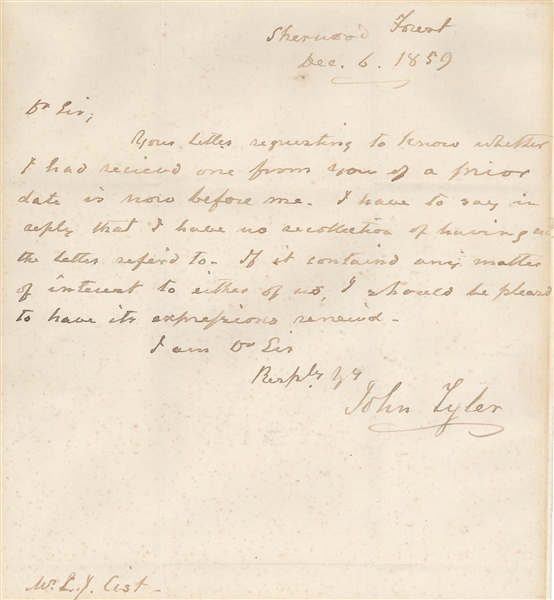 Sherwood Forest
Dec. 6. 1859
Dr Sir,
Your letter requesting to know whether
I had recievd one from you of a prior
date is now before me. I have to say in
reply that I have no recollection of having
the letter referd to. If it containd any matter
of interest to either of us, I should be pleasd
to have its expressions renewd.
I am Dr Sir
Resply Yr
John Tyler
Mr. L. J. Cist